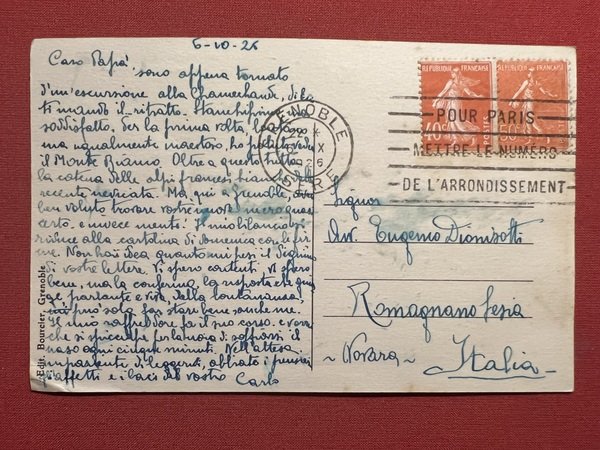 6-10-26
Caro Papà,
sono appena tornato
d'un'escursione alla Chamechaude, di là
ti mando il ritratto. Stanchissimo ma
soddisfatto. Per la prima volta,
ma ugualmente maestoso, ho potuto vedere
il Monte Bianco. Oltre a questo tutta
la catena delle alpi francesi bianca di
recente nevicata. Ma, qui a Grenoble,
ben voluto trovare vostre nuove
certo, e invece niente! Il mio bilancio si
riduce alla cartolina di domenica con le fir
me. Non hai idea quanto mi pesi il digiuno
di vostre lettere. Vi spero contenti. Vi spero
bene, ma la conferma, la risposta che
parlante e viva della lontananza,
solo far stare bene anche me.
Il mio raffreddore fa il suo corso. e vorrà
che si
naso ogni cinque minuti. Nell'attesa
impaziente di leggerti, abbiate i pensieri
affetti e i baci del vostro Carlo
Edit. Boureier, Grenoble
GRENOBLE
X
1926
ISERE
REPUBLIQUE FRANÇAISE
REPUBLIQUE FRANÇAISE
40c POSTES
50c
POUR PARIS
METTRE LE NUMÉRO
DE L'ARRONDISSEMENT
Signor
Avv. Eugenio Dionisotti
Romagnano Sesia
~ Novara ~
Italia